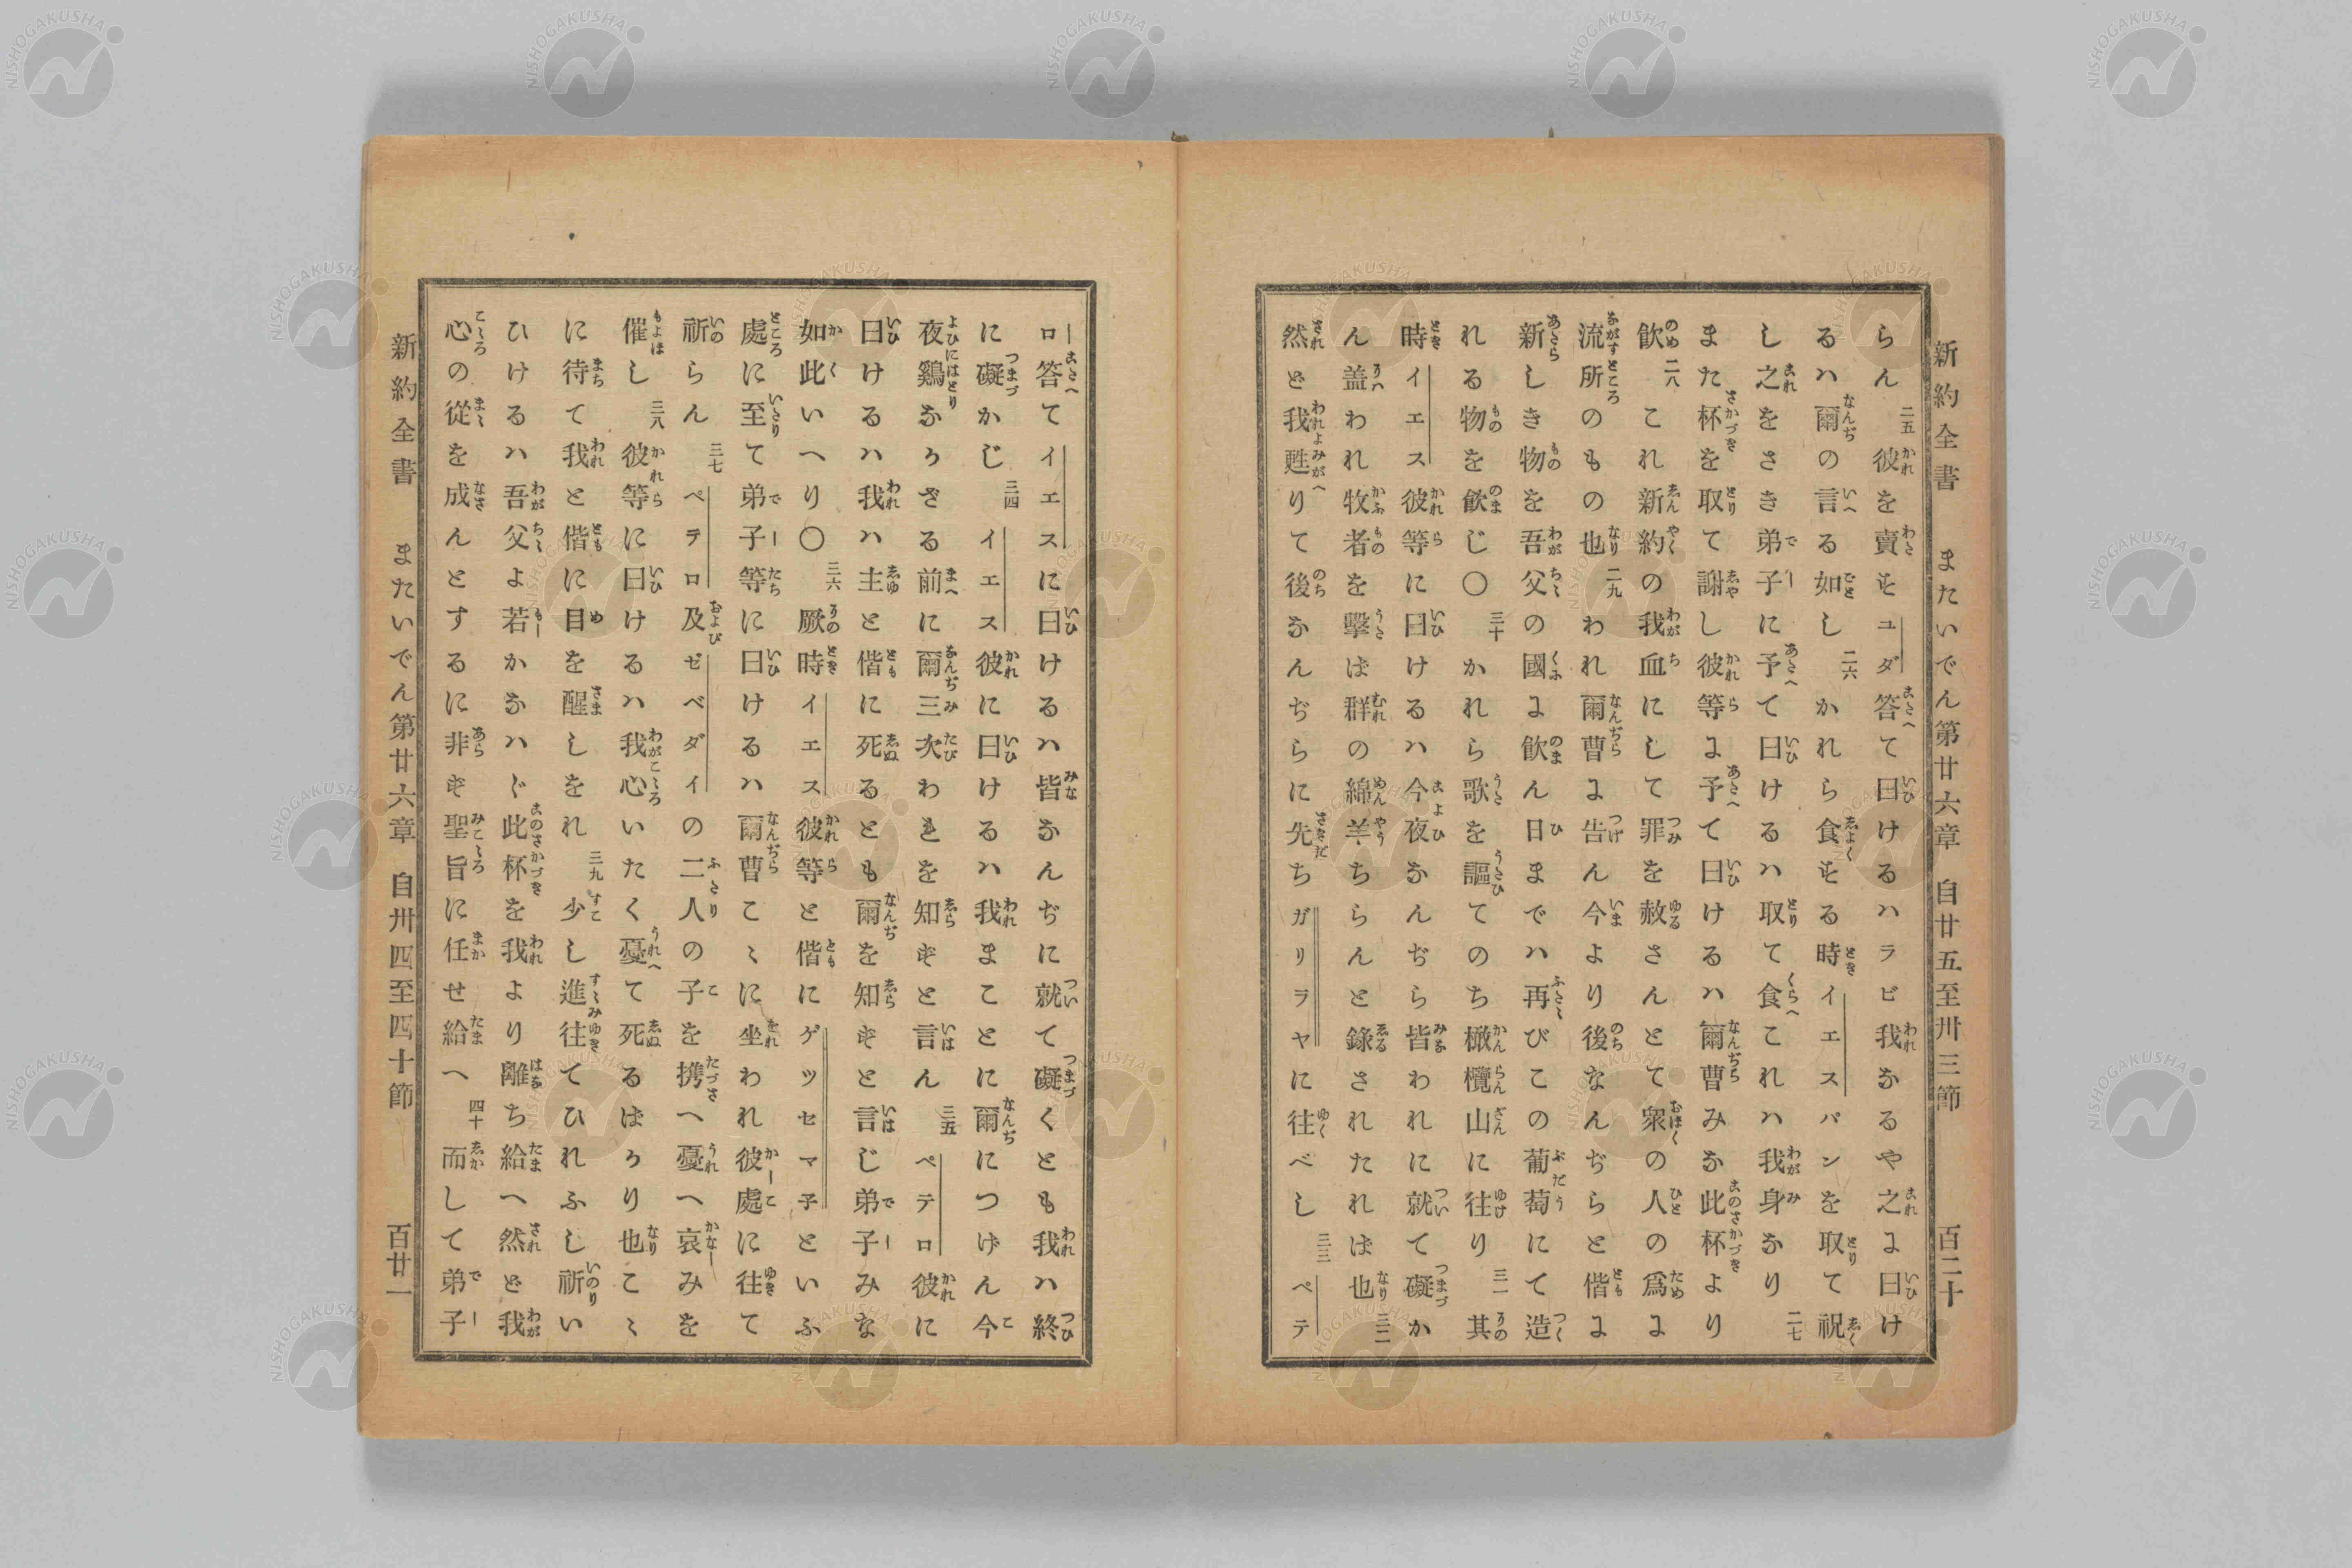 新約全書 またいでん第廿六章 自廿五至卅三節 百二十
らん 二五 彼を賣せるユダ答て曰けるハラビ我なるや之に曰け
るハ爾の言る如し 二六 かれら食せる時イエスパンを取て祝
し之をさき弟子に予て曰けるハ取て食これハ我身なり 二七
また杯を取て謝し彼等に予て曰けるハ爾曹みな此杯より
飲 二八 これ新約の我血にして罪を赦さんとて衆の人の爲に
流所のもの也 二九 われ爾曹に告ん今より後なんぢらと偕に
新しき物を吾父の國に飲ん日までハ再びこの葡萄にて造
れる物を飲じ〇 三十 かれら歌を謳てのち橄欖山に往り 三一 其
時イエス彼等に曰けるハ今夜なんぢら皆われに就て礙か
ん盖われ牧者を擊ば群の綿羊ちらんと錄されたれば也 三二
然ど我甦りて後なんぢらに先ちガリラヤに往べし 三三 ペテ
ロ答てイエスに曰けるハ皆なんぢに就て礙くとも我ハ終
に礙かじ 三四 イエス彼に曰けるハ我まことに爾につげん今
夜鷄なかざる前に爾三次われを知ずと言ん 三五 ペテロ彼に
曰けるハ我ハ主と偕に死るとも爾を知ずと言じ弟子みな
如此いへり〇 三六 厥時イエス彼等と偕にゲツセマ子といふ
處に至て弟子等に曰けるハ爾曹こゝに坐われ彼處に往て
祈らん 三七 ペテロ及ゼベダイの二人の子を携へ憂へ哀みを
催し 三八 彼等に曰けるハ我心いたく憂て死るばかり也こゝ
に待て我と偕に目を醒しをれ 三九 少し進往てひれふし祈い
ひけるハ吾父よ若かなハゞ此杯を我より離ち給へ然ど我
心の從を成んとするに非ず聖旨に任せ給へ 四十 而して弟子
新約全書 またいでん第廿六章 自卅四至四十節 百廿一
NISHOGAKUSHA